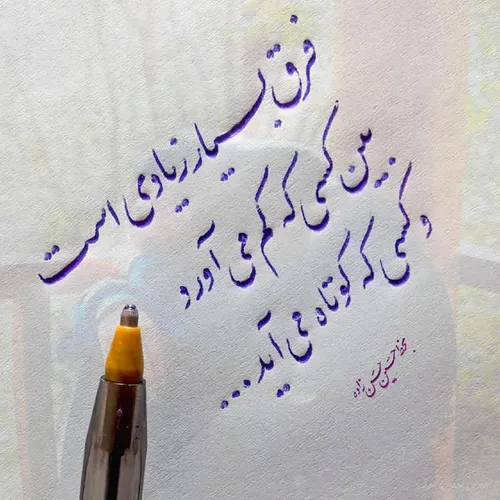 فرق بسیار زیادی است
بین کسی که کم می آورد
و کسی که کوتاه می آید...
بخط حسین حسن زاده